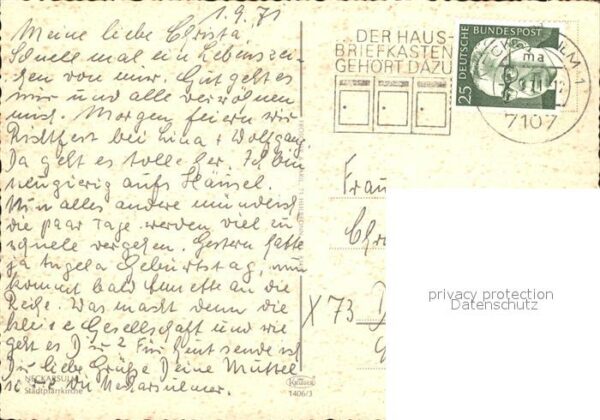 1.9.71
Meine liebe Christa,
Schnell mal ein Lebenszei-
chen von mir. Gut geht es
mir und alle verwöhnen
mich. Morgen feiern wir
Richtfest bei Lina + Wolfgang.
Da geht es toll her. Ich bin
neugierig aufs Häusel.
Nun alles andere mündlich
die paar Tage werden viel zu
schnell vergehen. Gestern hatte
ja Angela Geburtstag, nun
kommt bald Annette an die
Reihe. Was macht denn die
kleine Gesellschaft und wie
geht es Dir? Für heut sende ich
Dir liebe Grüße Deine Mutter
die Neckarsulmer.
NECKARSULM
Stadtpfarrkirche
DER HAUS-
BRIEFKASTEN
GEHÖRT DAZU
25 DEUTSCHE BUNDESPOST
ma
7107
Frau
Chr
X 73 D
Krüger
1406/3
privacy protection
Datenschutz